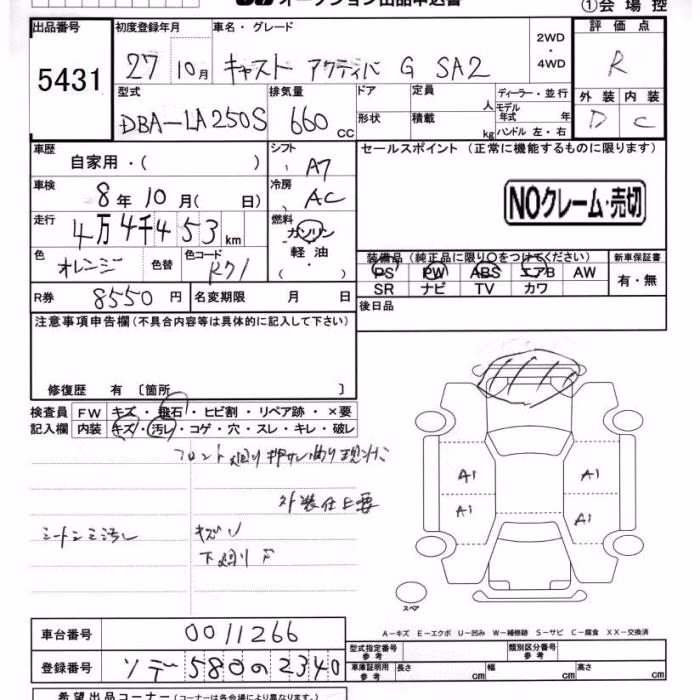 オークション出品申込書
①会場控
出品番号 初度登録年月 車名・グレード 2WD・4WD 評価点
5431 27 10月 キャスト アクティバ G SA2 R
型式 排気量 ドア 定員 人 ディーラー・並行 外装 内装
DBA-LA250S 660 cc 形状 積載 kg モデル年式 年 ハンドル 左・右 D C
車歴 自家用・( ) シフト A7 セールスポイント (正常に機能するものに限ります)
車検 8年 10月( 日) 冷房 AC NOクレーム・売切
走行 4万4千453km 燃料 ガソリン・軽油・( )
色 オレンジ 色替 色コード R71 装備品(純正品に限り○をつけてください) 新車保証書
PS PW ABS エアB AW 有・無
SR ナビ TV カワ
R券 8550円 名変期限 月 日 後日品
注意事項申告欄(不具合内容等は具体的に記入して下さい)
修復歴 有 〔箇所 〕
検査員 FW キズ・飛石・ヒビ割・リペア跡・×要
記入欄 内装 キズ・汚レ・コゲ・穴・スレ・キレ・破レ
フロント廻り押サレ曲り現状に
外装仕上要
シート 汚レ キズU
下廻りF
A1 A1
A1 A1
スペア
A-キズ E-エクボ U-凹み W-補修跡 S-サビ C-腐食 XX-交換済
車台番号 0011266 型式指定番号 類別区分番号
登録番号 ソデ 580の2340 車庫証明用参考 長さ cm 幅 cm 高さ cm
希望出品コーナー(コーナーは各会場により異なります。)